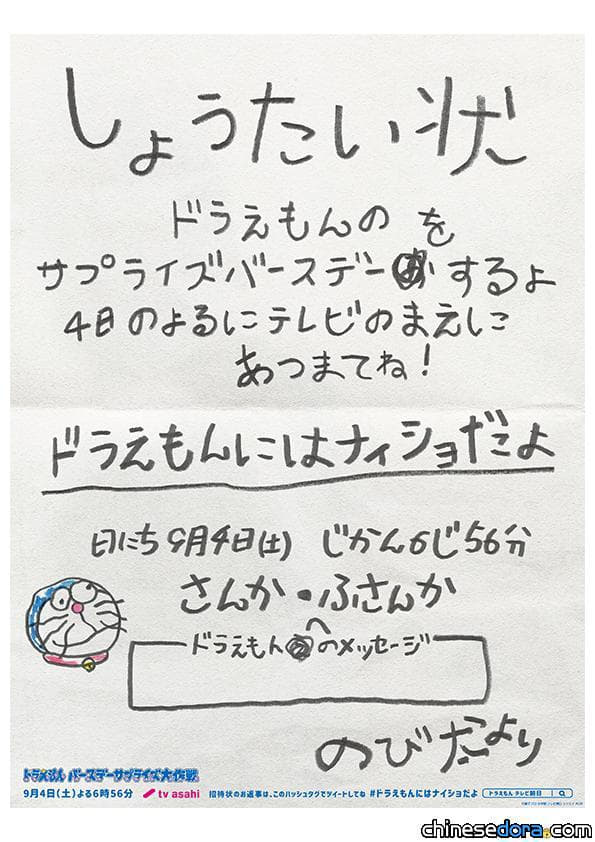 しょうたい状
ドラえもんのを
サプライズバースデーするよ
4日のよるにテレビのまえに
あつまてね!
ドラえもんにはナイショだよ
日にち9月4日(土) じかん6じ56分
さんか・ふさんか
ドラえもんへのメッセージ
のびたより
ドラえもん バースデーサプライズ大作戦
9月4日(土)よる6時56分 tv asahi 招待状のお返事は、このハッシュタグでツイートしてね #ドラえもんにはナイショだよ ドラえもん テレビ朝日
chinesedora.com